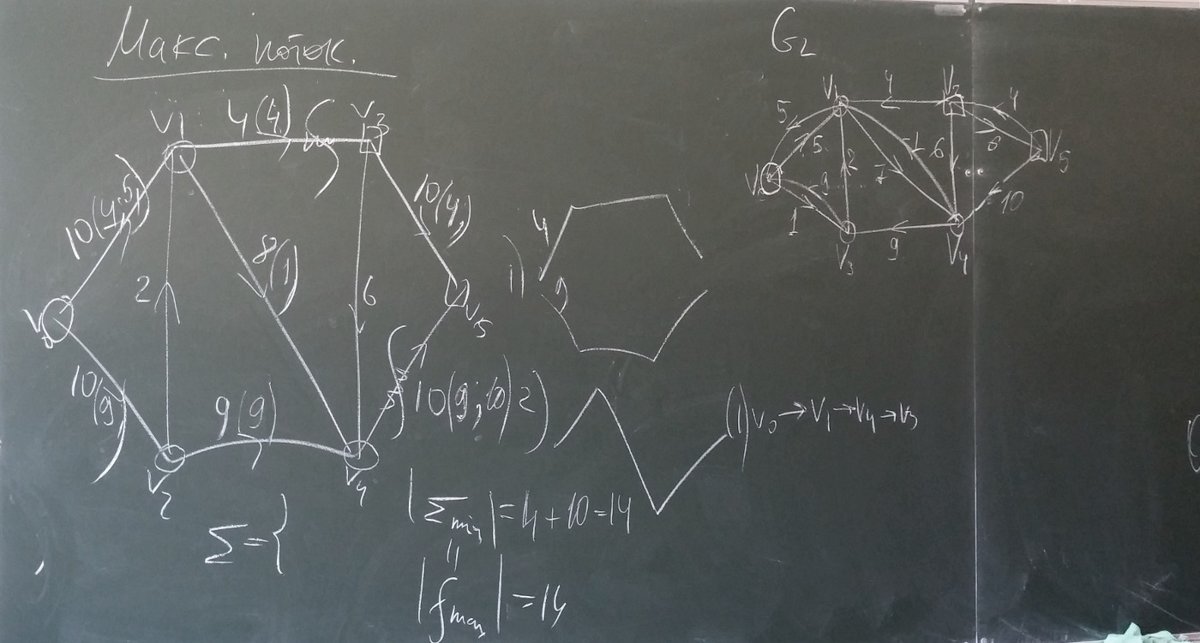 Макс. поток.
G₂
V₁
4(4)
V₃
10(4;5)
8(1)
10(4)
2
6
V₀
V₅
10(9)
9(9)
10(9;10)
V₂
V₄
Σ={
1)
4
9
2)
(1) V₀→V₁→V₄→V₅
|Σmin|=4+10=14
||
|fmax|=14
V₁
4
V₂
4
5
5
6
6
V₅
V₀
9
2
7
1
10
1
V₃
9
V₄